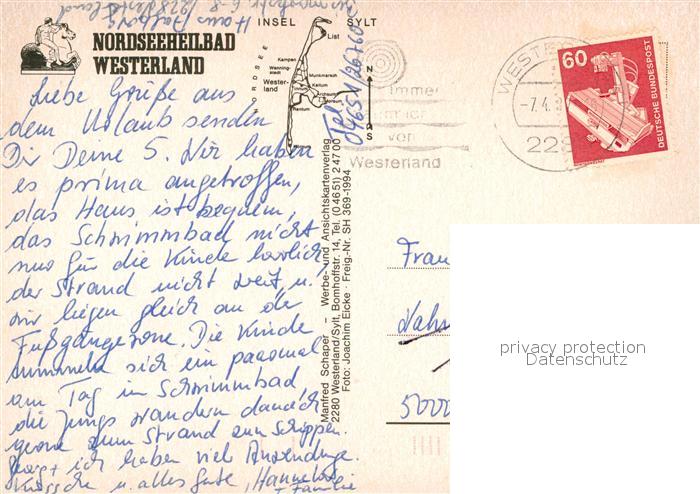 NORDSEEHEILBAD
WESTERLAND
INSEL SYLT
NORDSEE
List
Kampen
Wenning-
stedt
Munkmarsch
Wester-
land
Keitum
Archsum
Morsum
Rantum
Hörnum
N
S
Tel
04651/26760
Immer
von
Westerland
WESTER
-7.4.
228
60
DEUTSCHE BUNDESPOST
Liebe Grüße aus
dem Urlaub senden
Dir Deine 5. Wir haben
es prima angetroffen,
das Haus ist bequem,
das Schwimmbad nicht
nur für die Kinder herrlich,
der Strand nicht weit, u.
wir liegen gleich an der
Fußgängerzone. Die Kinder
tummeln sich ein paarmal
am Tag im Schwimmbad
die Jungs wandern danach
gerne zum Strand zum Schippen.
+ ich haben viel Anwendunge.
u. alles Gute, Hannelore
+ Familie
Manfred Schaper – Werbe- und Ansichtskartenverlag
2280 Westerland/Sylt, Bomhoffstr. 14, Tel. (0 46 51) 2 47 00
Foto: Joachim Eicke · Freig.-Nr. SH 369-1994
Frau
5000
privacy protection
Datenschutz